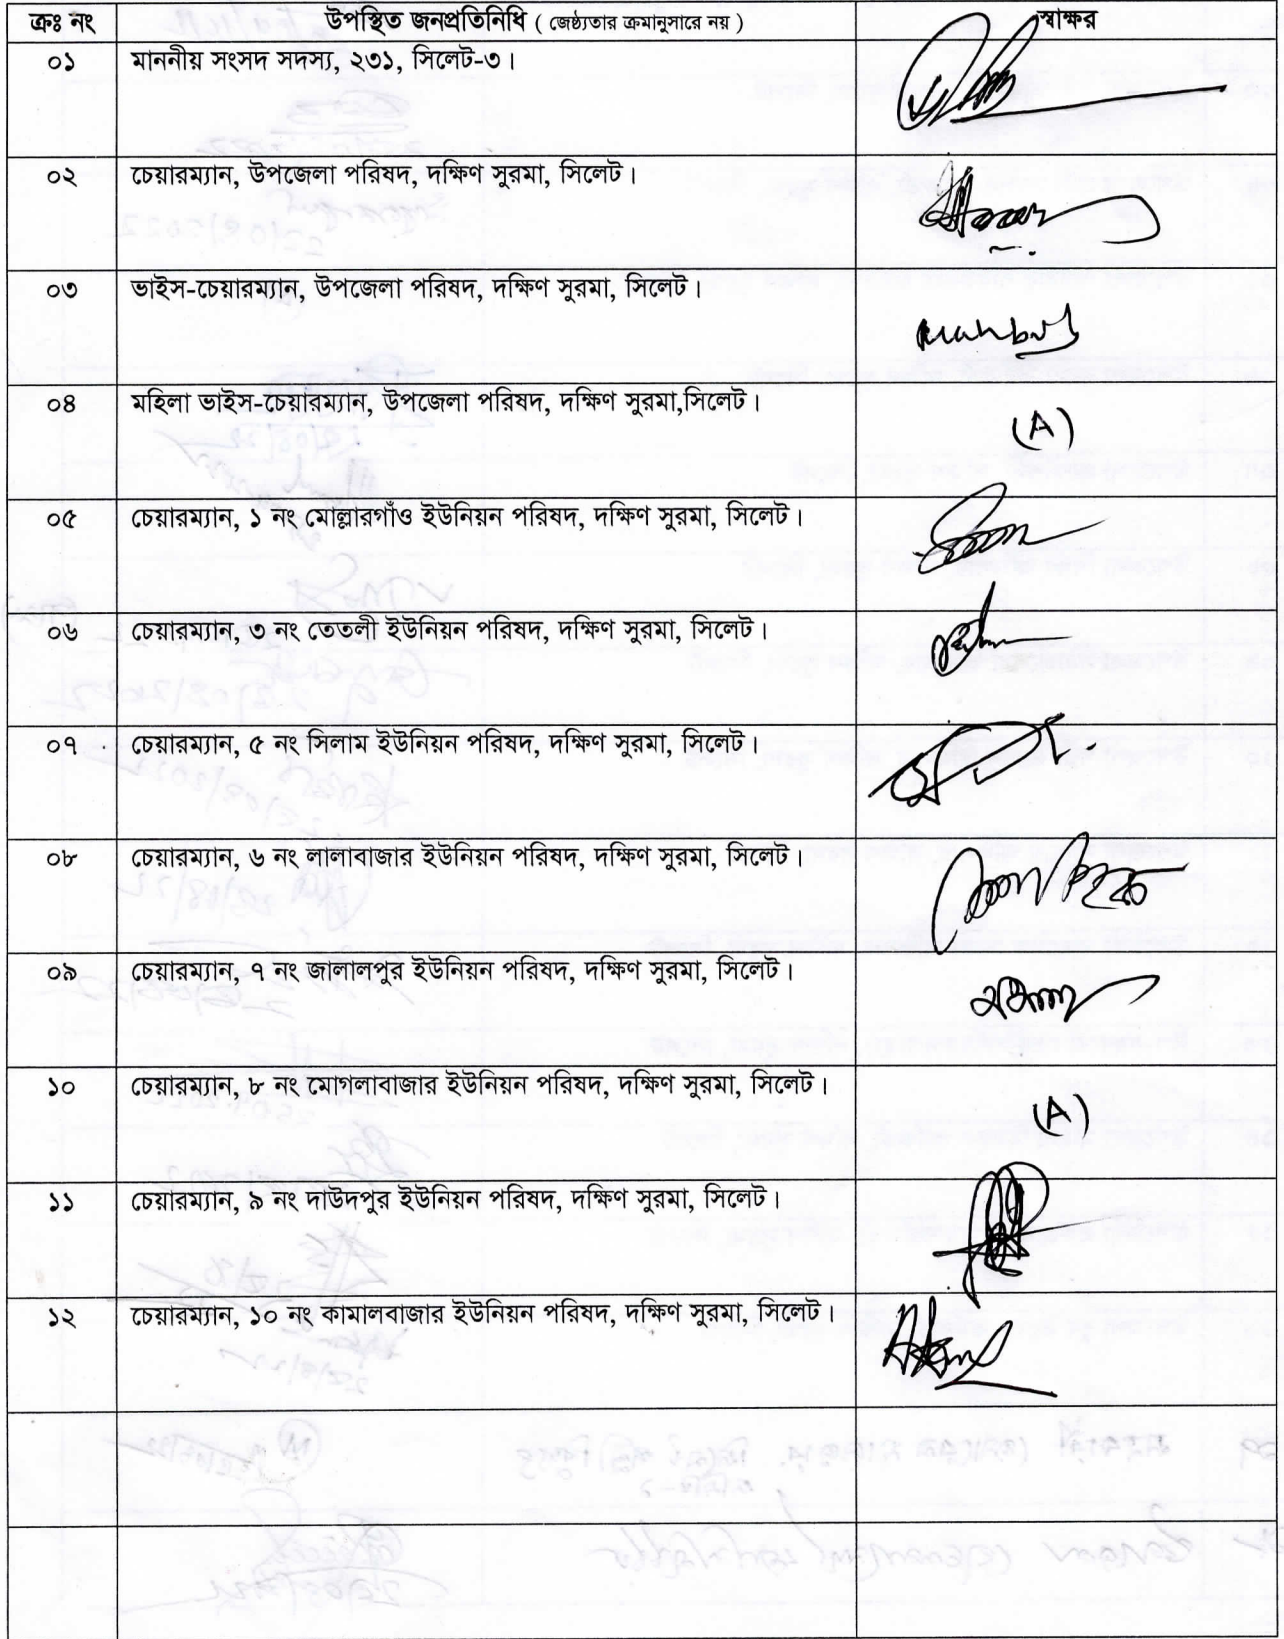 ক্রঃ নং উপস্থিত জনপ্রতিনিধি ( জেষ্ঠ্যতার ক্রমানুসারে নয় ) স্বাক্ষর
০১ মাননীয় সংসদ সদস্য, ২৩১, সিলেট-৩।
০২ চেয়ারম্যান, উপজেলা পরিষদ, দক্ষিণ সুরমা, সিলেট।
০৩ ভাইস-চেয়ারম্যান, উপজেলা পরিষদ, দক্ষিণ সুরমা, সিলেট।
০৪ মহিলা ভাইস-চেয়ারম্যান, উপজেলা পরিষদ, দক্ষিণ সুরমা,সিলেট। (A)
০৫ চেয়ারম্যান, ১ নং মোল্লারগাঁও ইউনিয়ন পরিষদ, দক্ষিণ সুরমা, সিলেট।
০৬ চেয়ারম্যান, ৩ নং তেতলী ইউনিয়ন পরিষদ, দক্ষিণ সুরমা, সিলেট।
০৭ চেয়ারম্যান, ৫ নং সিলাম ইউনিয়ন পরিষদ, দক্ষিণ সুরমা, সিলেট।
০৮ চেয়ারম্যান, ৬ নং লালাবাজার ইউনিয়ন পরিষদ, দক্ষিণ সুরমা, সিলেট।
০৯ চেয়ারম্যান, ৭ নং জালালপুর ইউনিয়ন পরিষদ, দক্ষিণ সুরমা, সিলেট।
১০ চেয়ারম্যান, ৮ নং মোগলাবাজার ইউনিয়ন পরিষদ, দক্ষিণ সুরমা, সিলেট। (A)
১১ চেয়ারম্যান, ৯ নং দাউদপুর ইউনিয়ন পরিষদ, দক্ষিণ সুরমা, সিলেট।
১২ চেয়ারম্যান, ১০ নং কামালবাজার ইউনিয়ন পরিষদ, দক্ষিণ সুরমা, সিলেট।